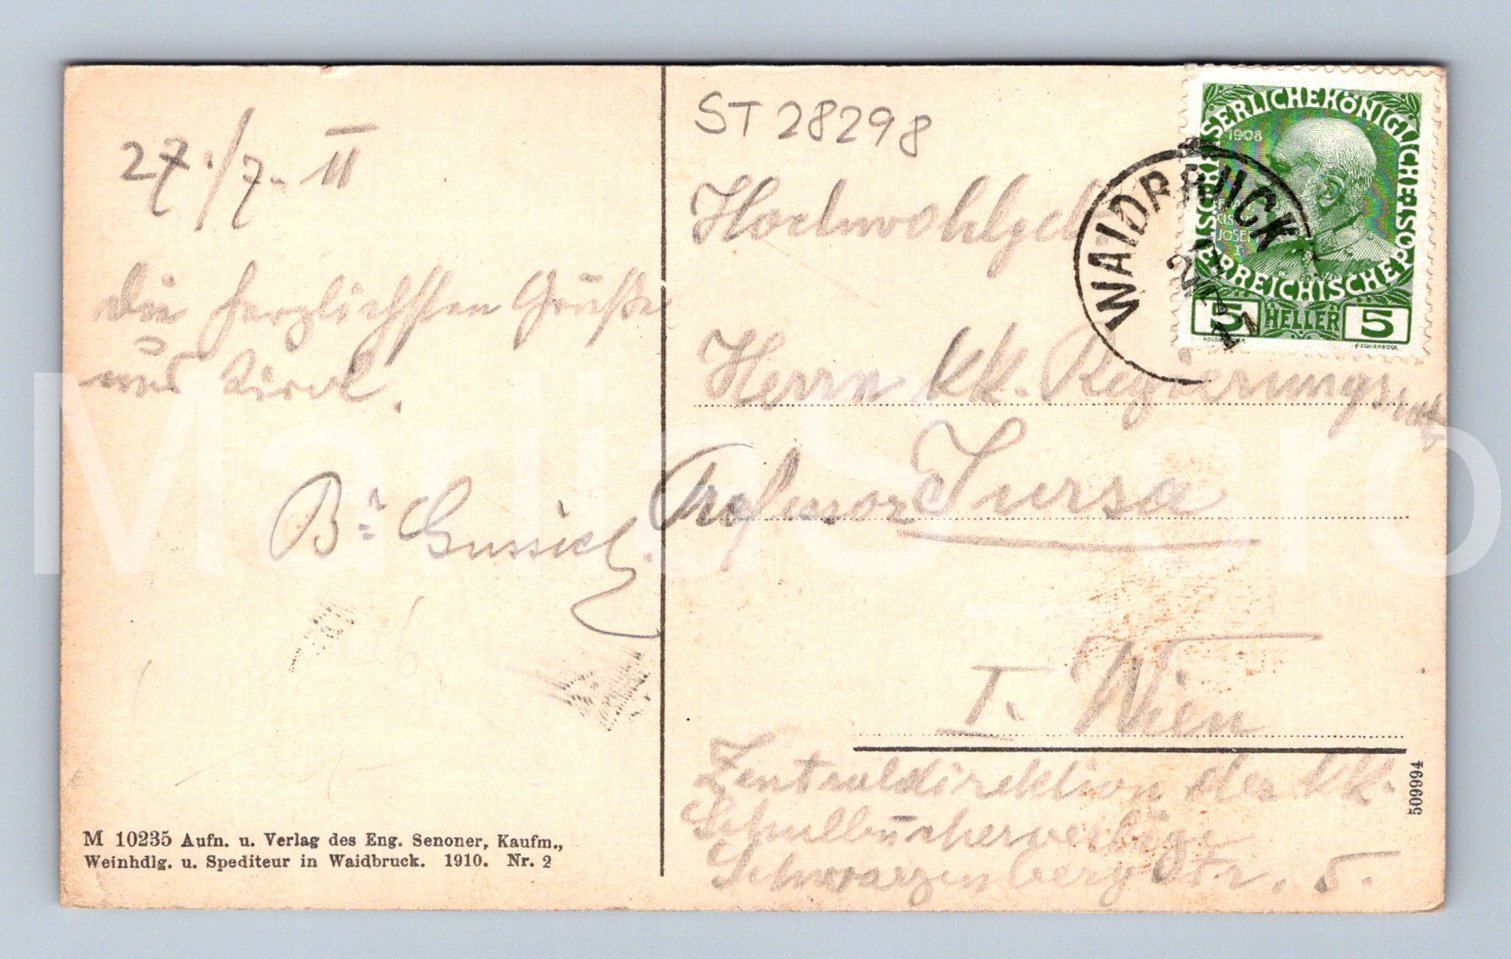 27./7. 11
Die herzlichsten Grüße
aus Tirol.
ST 28298
Hochwohlgeb
Herrn kk. Regierungsrat
Professor Tursa
I. Wien
Zentraldirektion des kk.
Schulbücherverlage
Schwarzenbergstr. 5.
WAIDBRUCK
KAISERLICHE KÖNIGLICHE
ÖSTERREICHISCHE POST
1908
5 HELLER 5
509994
M 10235 Aufn. u. Verlag des Eng. Senoner, Kaufm.,
Weinhdlg. u. Spediteur in Waidbruck. 1910. Nr. 2